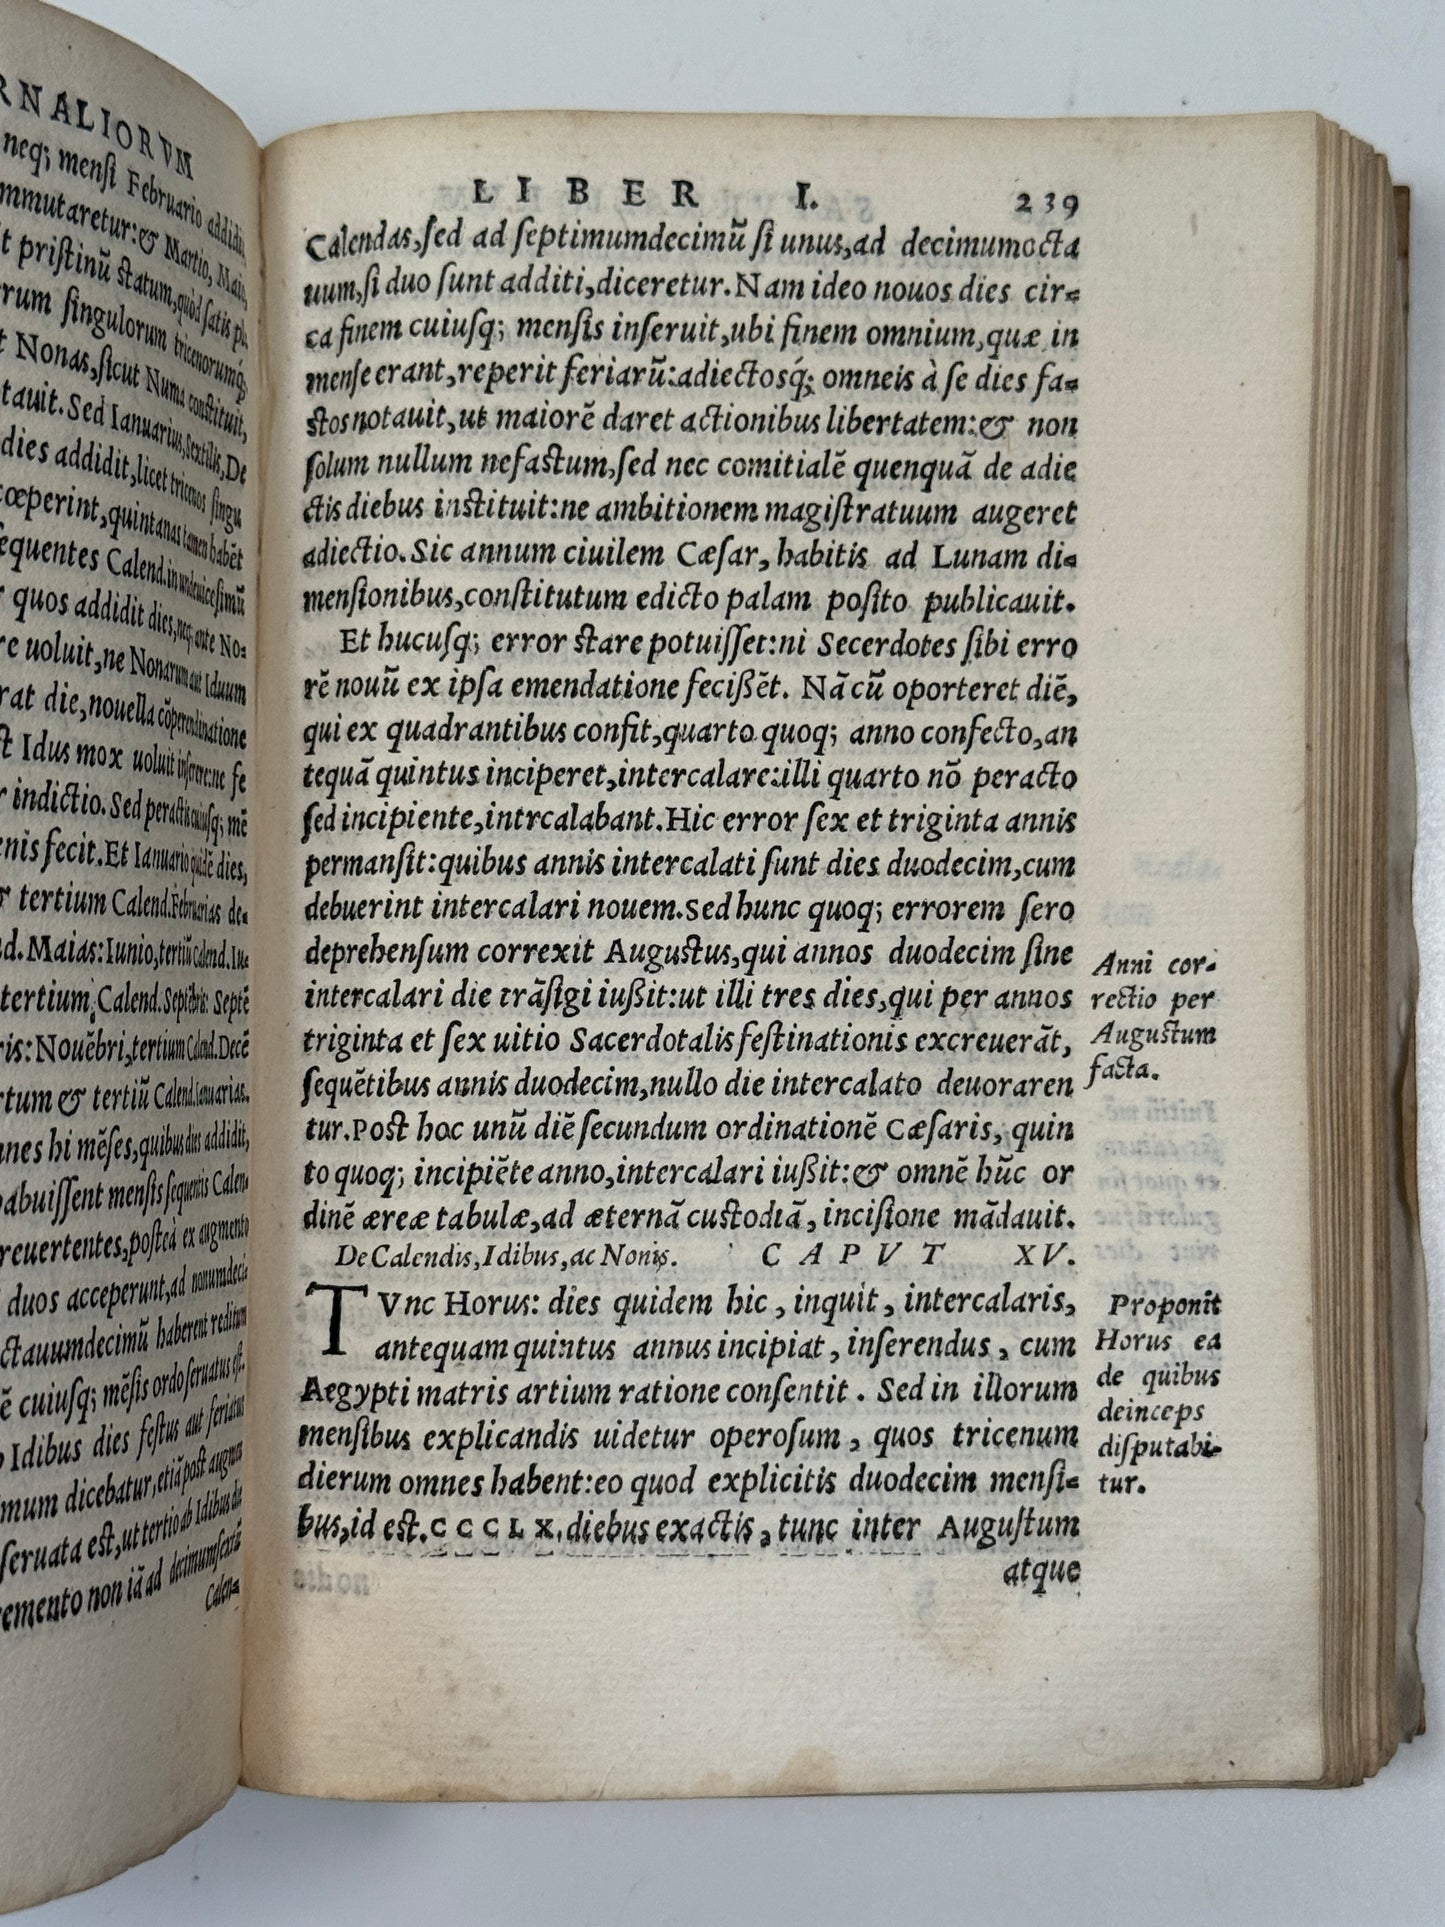 RNALIORVM
neq; menſi Februario addidit
mmutaretur: & Martio, Maio,
t priſtinũ ſtatum, quòd ſatis
rum ſingulorum tricenorumq́;
t Nonas, ſicut Numa conſtituit,
tauit. Sed Ianuarius, Sextilis, De
dies addidit, licet tricenos ſingu
cœperint, quintanas tamen habẽt
equentes Calend. in undeuiceſimũ
r quos addidit dies, neq; ante No-
re uoluit, ne Nonarum aut Iduum
rat die, nouella cõperendinatione
ſt Idus mox uoluit inſerere: ne fe
r indictio. Sed peractis cuiuſq; mẽ
enis fecit. Et Ianuario quidẽ dies,
r tertium Calend. Februarias de-
d. Maias: Iunio, tertiũ Calend. Iu-
tertium Calend. Septẽbris: Septẽ
ris: Nouẽbri, tertium Calend. Decẽ
rtum & tertiũ Calend. Ianuarias.
nnes hi mẽſes, quibus dies addidit,
abuiſſent menſis ſequentis Calen-
reuertentes, poſteà ex augmento
duos acceperunt, ad nonumdeci
ctauumdecimũ haberent reditum
ẽ cuiuſq; mẽſis ordo ſeruatus eſt.
Idibus dies feſtus aut feriatus
imum dicebatur, etiã poſt augmen
ſeruata eſt, ut tertio ab Idibus die
remento non iã ad decimumſextũ
Calen-
LIBER I. 239
Calendas, ſed ad ſeptimumdecimũ ſi unus, ad decimumocta
uum, ſi duo ſunt additi, diceretur. Nam ideo nouos dies cir-
ca finem cuiuſq; menſis inſeruit, ubi finem omnium, quæ in
menſe erant, reperit feriarũ: adiectosq́; omneis à ſe dies fa-
ſtos notauit, ut maiorẽ daret actionibus libertatem: & non
ſolum nullum nefaſtum, ſed nec comitialẽ quenquã de adie
ctis diebus inſtituit: ne ambitionem magiſtratuum augeret
adiectio. Sic annum ciuilem Cæſar, habitis ad Lunam di-
menſionibus, conſtitutum edicto palam poſito publicauit.
Et hucuſq; error ſtare potuiſſet: ni Secerdotes ſibi erro
rẽ nouũ ex ipſa emendatione feciſsẽt. Nã cũ oporteret diẽ,
qui ex quadrantibus confit, quarto quoq; anno confecto, an
tequã quintus inciperet, intercalare: illi quarto nõ peracto
ſed incipiente, intrcalabant. Hic error ſex et triginta annis
permanſit: quibus annis intercalati ſunt dies duodecim, cum
debuerint intercalari nouem. Sed hunc quoq; errorem ſero
deprehenſum correxit Auguſtus, qui annos duodecim ſine
intercalari die trãſigi iuſsit: ut illi tres dies, qui per annos
triginta et ſex uitio Sacerdotalis feſtinationis excreuerãt,
ſequẽtibus annis duodecim, nullo die intercalato deuoraren
tur. Poſt hoc unũ diẽ ſecundum ordinationẽ Cæſaris, quin
to quoq; incipiẽte anno, intercalari iuſsit: & omnẽ hũc or
dinẽ æreæ tabulæ, ad æternã cuſtodiã, inciſione mãdauit.
De Calendis, Idibus, ac Nonis. CAPVT XV.
TVnc Horus: dies quidem hic, inquit, intercalaris,
antequam quintus annus incipiat, inſerendus, cum
Aegypti matris artium ratione conſentit. Sed in illorum
menſibus explicandis uidetur operoſum, quos tricenum
dierum omnes habent: eo quod explicitis duodecim menſi-
bus, id eſt. CCCLX. diebus exactis, tunc inter Auguſtum
atque
Anni cor-
rectio per
Auguſtum
facta.
Proponit
Horus ea
de quibus
deinceps
diſputabi-
tur.